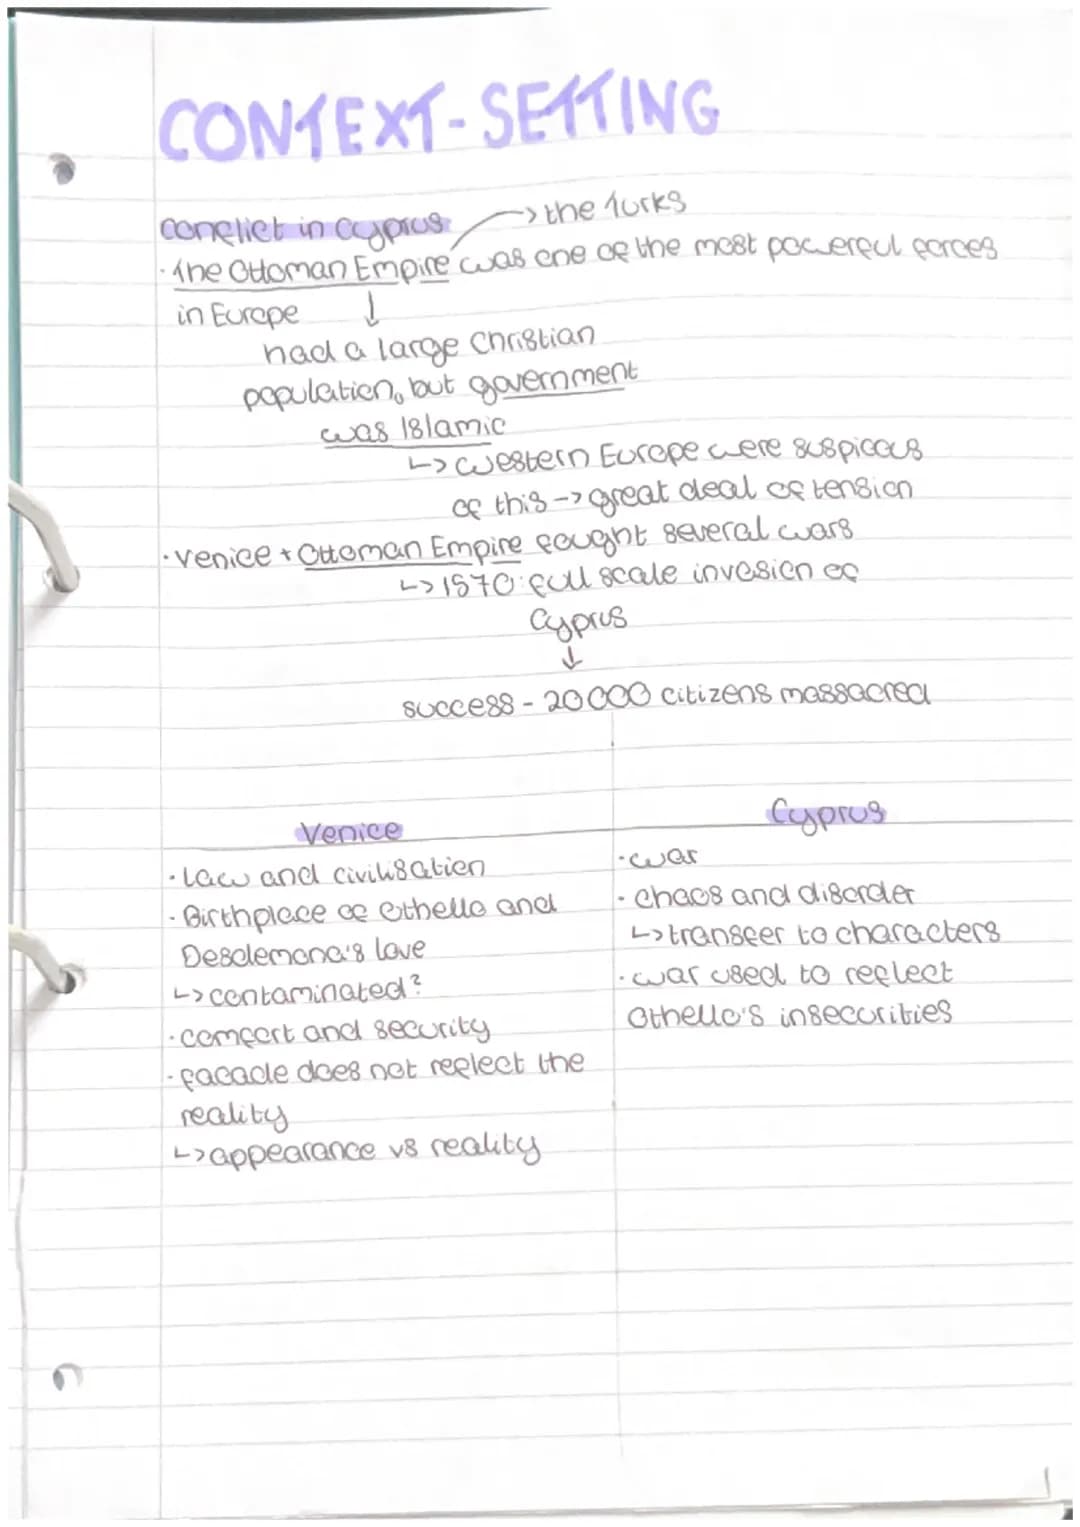 CONTEXT-SETTING
conflict in Cyprus
→ the Turks
· The Ottoman Empire was one of the most powerful forces
in Europe ↓
had a large Christian
population, but government
was Islamic
↳ Western Europe were suspicous
of this → great deal of tension
· Venice + Ottoman Empire fought several wars
↳ 1570: full scale invasion of
Cyprus
↓
success - 20000 citizens massacred
Venice
· Law and civilisation
· Birthplace of Othello and
Desdemona's love
↳ contaminated?
· comfort and security
· facade does not reflect the
reality
↳ appearance vs reality
Cyprus
· war
· chaos and disorder
↳ transfer to characters
· war used to reflect
Othello's insecurities